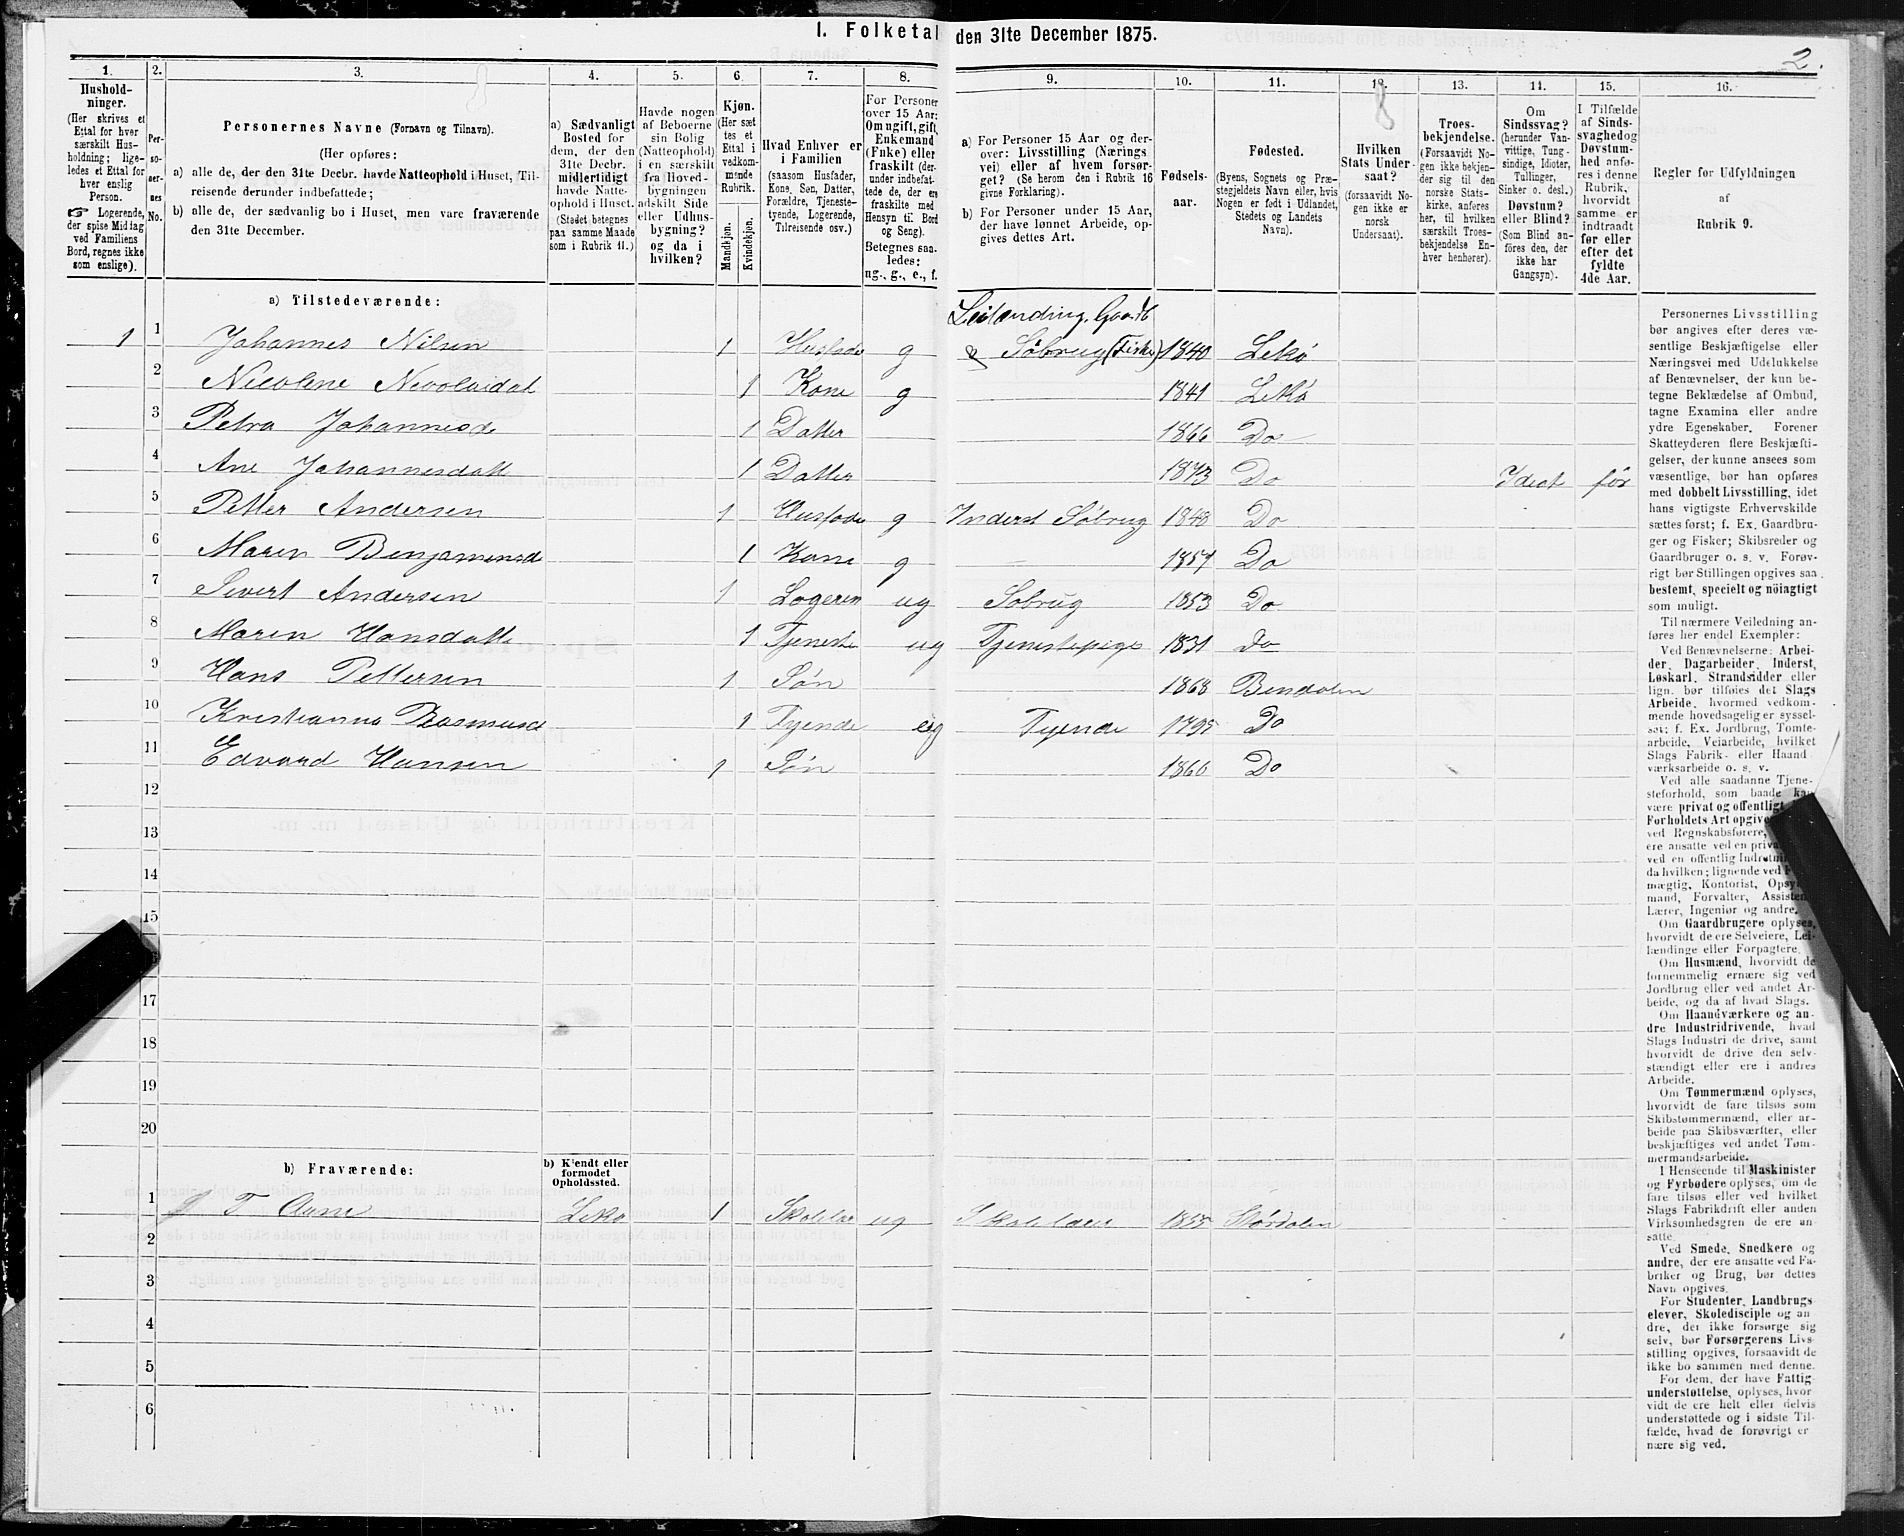 I. Folketal den 31te December 1875.
2.
1. 2. 3. 4. 5. 6. 7. 8. 9. 10. 11. 12. 13. 14. 15. 16.
8 8
Hushold-
ninger.
(Her skrives et
Ettal for hver
særskilt Hus-
holdning; lige-
ledes et Ettal for
hver enslig
Person.
☞ Logerende,
der spise Middag
ved Familiens
Bord, regnes ikke
som enslige).
Per-
so-
ner-
nes
No.
Personernes Navne (Fornavn og Tilnavn).
(Her opføres:
a) alle de, der den 31te Decbr. havde Natteophold i Huset, Til-
reisende derunder indbefattede;
b) alle de, der sædvanlig bo i Huset, men vare fraværende
den 31te December.
a) Sædvanligt
Bosted for
dem, der den
31te Decbr.
midlertidigt
havde Natte-
ophold i Huset.
(Stedet betegnes
paa samme Maade
som i Rubrik 11.)
Havde nogen
af Beboerne
sin Bolig
(Natteophold)
i en særskilt
fra Hoved-
bygningen
adskilt Side
eller Udhus-
bygning?
og da i
hvilken?
Kjøn.
(Her sæt
tes et
Ettal i
vedkom-
mende
Rubrik.
Mandkjøn.
Kvindekjøn.
Hvad Enhver er
i Familien
(saasom Husfader,
Kone, Søn, Datter,
Forældre, Tjeneste-
tyende, Logerende,
Tilreisende osv.)
For Personer
over 15 Aar:
Om ugift, gift,
Enkemand
(Enke) eller
fraskilt (der-
under indbefat-
tede de, der ere
fraskilte med
Hensyn til Bord
og Seng).
Betegnes saa-
ledes:
ug., g., e., f.
a) For Personer 15 Aar og der-
over: Livsstilling (Nærings
vei) eller af hvem forsør-
get? (Se herom den i Rubrik 16
givne Forklaring).
b) For Personer under 15 Aar,
der have lønnet Arbeide, op-
gives dettes Art.
Fødsels-
aar.
Fødested.
(Byens, Sognets og Præ-
stegjeldets Navn eller, hvis
Nogen er født i Udlandet,
Stedets og Landets
Navn).
Hvilken
Stats Under-
saat?
(forsaavidt No-
gen ikke er
norsk
Undersaat).
Troes-
bekjendelse.
(Forsaavidt No-
gen ikke bekjen-
der sig til den
norske Stats-
kirke, anføres
her, til hvilken
særskilt Troes-
bekjendelse En-
hver henhører).
Om
Sindssvag?
(herunder Van-
vittige, Tung-
sindige, Idioter,
Tullinger,
Sinker o. desl.)
Døvstum?
eller Blind?
(Som Blind an-
føres den, der
ikke har
Gangsyn).
I Tilfælde
af Sinds-
svaghed og
Døvstum-
hed anfø-
res i denne
Rubrik,
hvorvidt
samme er
indtraadt
før eller
efter det
fyldte
4de Aar.
Regler for Udfyldningen
af
Rubrik 9.
a) Tilstedeværende:
Leilænding, Gaardb
1 1 Johannes Nilsen 1 Husfader g & Søbrug (Fisker) 1840 Lekø
2 Nicoline Nicolaidat 1 Kone g 1841 Lekø
3 Petra Johannesd 1 Datter 1866 Do
4 Ane Johannesdatt 1 Datter 1873 Do Idiot før
5 Petter Andersen 1 Husfader g Inderst Søbrug 1840 Do
6 Maren Benjaminsd 1 Kone g 1857 Do
7 Sivert Andersen 1 Logeren ug Søbrug 1853 Do
8 Maren Hansdatte 1 Tjeneste ug Tjenestepige 1831 Do
9 Hans Pettersen 1 Søn 1868 Bindalen
10 Kristianna Rasmusd 1 Tyende Tyende 1795 Do
11 Edvard Hansen 1 Søn 1860 Do
12
13
14
15
17
18
19
20
b) Fraværende:
b) Kjendt eller
formodet
Opholdssted.
1 T Aune Leko 1 Skolelær ug Skolelærer 1855 Størdalen
2
3
4
5
6
Personernes Livsstilling
bør angives efter deres væ-
sentlige Beskjæftigelse eller
Næringsvei med Udelukkelse
af Benævnelser, der kun be-
tegne Beklædelse af Ombud,
tagne Examina eller andre
ydre Egenskaber. Forener
Skatteyderen flere Beskjæfti-
gelser, der kunne ansees som
væsentlige, bør han opføres
med dobbelt Livsstilling, idet
hans vigtigste Erhvervskilde
sættes først; f. Ex. Gaardbru-
ger og Fisker; Skibsreder og
Gaardbruger o. s. v. Forøv-
rigt bør Stillingen opgives saa
bestemt, specielt og nöiagtigt
som muligt.
Til nærmere Veiledning an-
føres her endel Exempler:
Ved Benævnelserne: Arbei-
der, Dagarbeider, Inderst,
Løskarl, Strandsidder eller
lign. bør tilføies det Slags
Arbeide, hvormed vedkom-
mende hovedsagelig er syssel-
sat; f. Ex. Jordbrug, Tomte-
arbeide, Veiarbeide, hvilket
Slags Fabrik- eller Haand
værksarbeide o. s. v.
Ved alle saadanne Tjene-
steforhold, som baade kan
være privat og offentligt
Forholdets Art opgive
ved Regnskabsførere,
ere ansatte ved en priva
ved en offentlig Indretni
da hvilken; lignende ved F
mægtig, Kontorist, Opsy
mand, Forvalter, Assisten
Lærer, Ingeniør og andre.
Om Gaardbrugere oplyses,
hvorvidt de ere Selveiere, Lei-
lændinge eller Forpagtere.
Om Husmænd, hvorvidt de
fornemmelig ernære sig ved
Jordbrug eller ved andet Ar-
beide, og da af hvad Slags.
Om Haandværkere og an-
dre Industridrivende, hvad
Slags Industri de drive, samt
hvorvidt de drive den selv-
stændigt eller ere i andres
Arbeide.
Om Tømmermænd oplyses,
hvorvidt de fare tilsøs som
Skibstømmermænd, eller ar-
beide paa Skibsværfter, eller
beskjæftiges ved andet Tøm-
mermandsarbeide.
I Henseende til Maskinister
og Fyrbødere oplyses, om de
fare tilsøs eller ved hvilket
Slags Fabrikdrift eller anden
Virksomhedsgren de ere an-
satte.
Ved Smede, Snedkere og
andre, der ere ansatte ved Fa-
briker og Brug, bør dettes
Navn opgives.
For Studenter, Landbrugs
elever, Skoledisciple og an
dre, der ikke forsørge sig
selv, bør Forsørgerens Livs-
stilling opgives, forsaavidt de
ikke bo sammen med denne.
For dem, der have Fattig
understøttelse, oplyses, hvor
vidt de ere helt eller delvis
understøttede og i sidste Til-
fælde, hvad de forøvrigt er
nære sig ved.